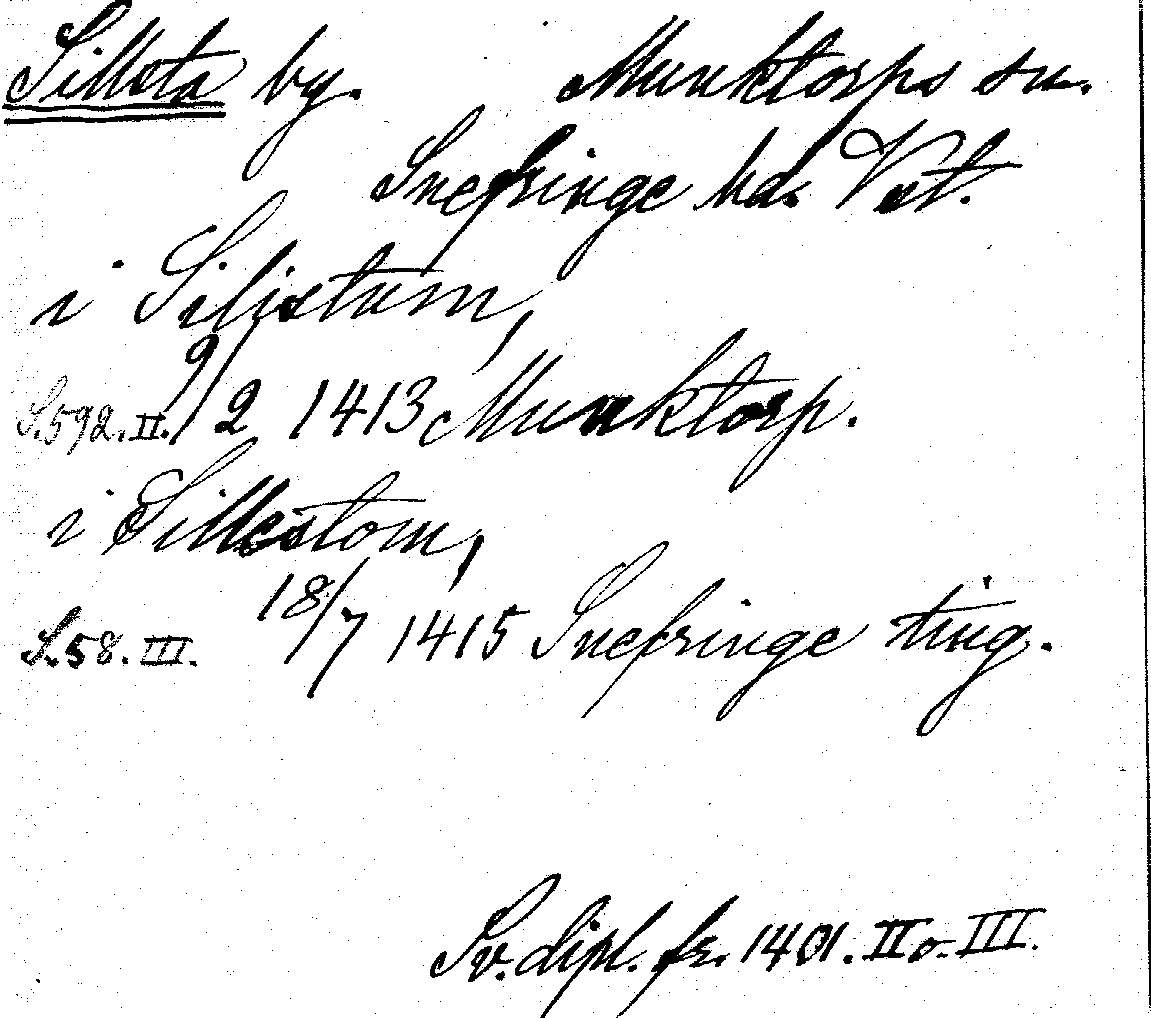 Sillsta by. Munktorps sn.
Snefringe hd. Vst.
i Silistum,
S. 592. II. 9/2 1413 Munktorp.
i Sillestom,
S. 58. III. 18/7 1415 Snefringe ting.
Sv. dipl. fr. 1401. II o. III.